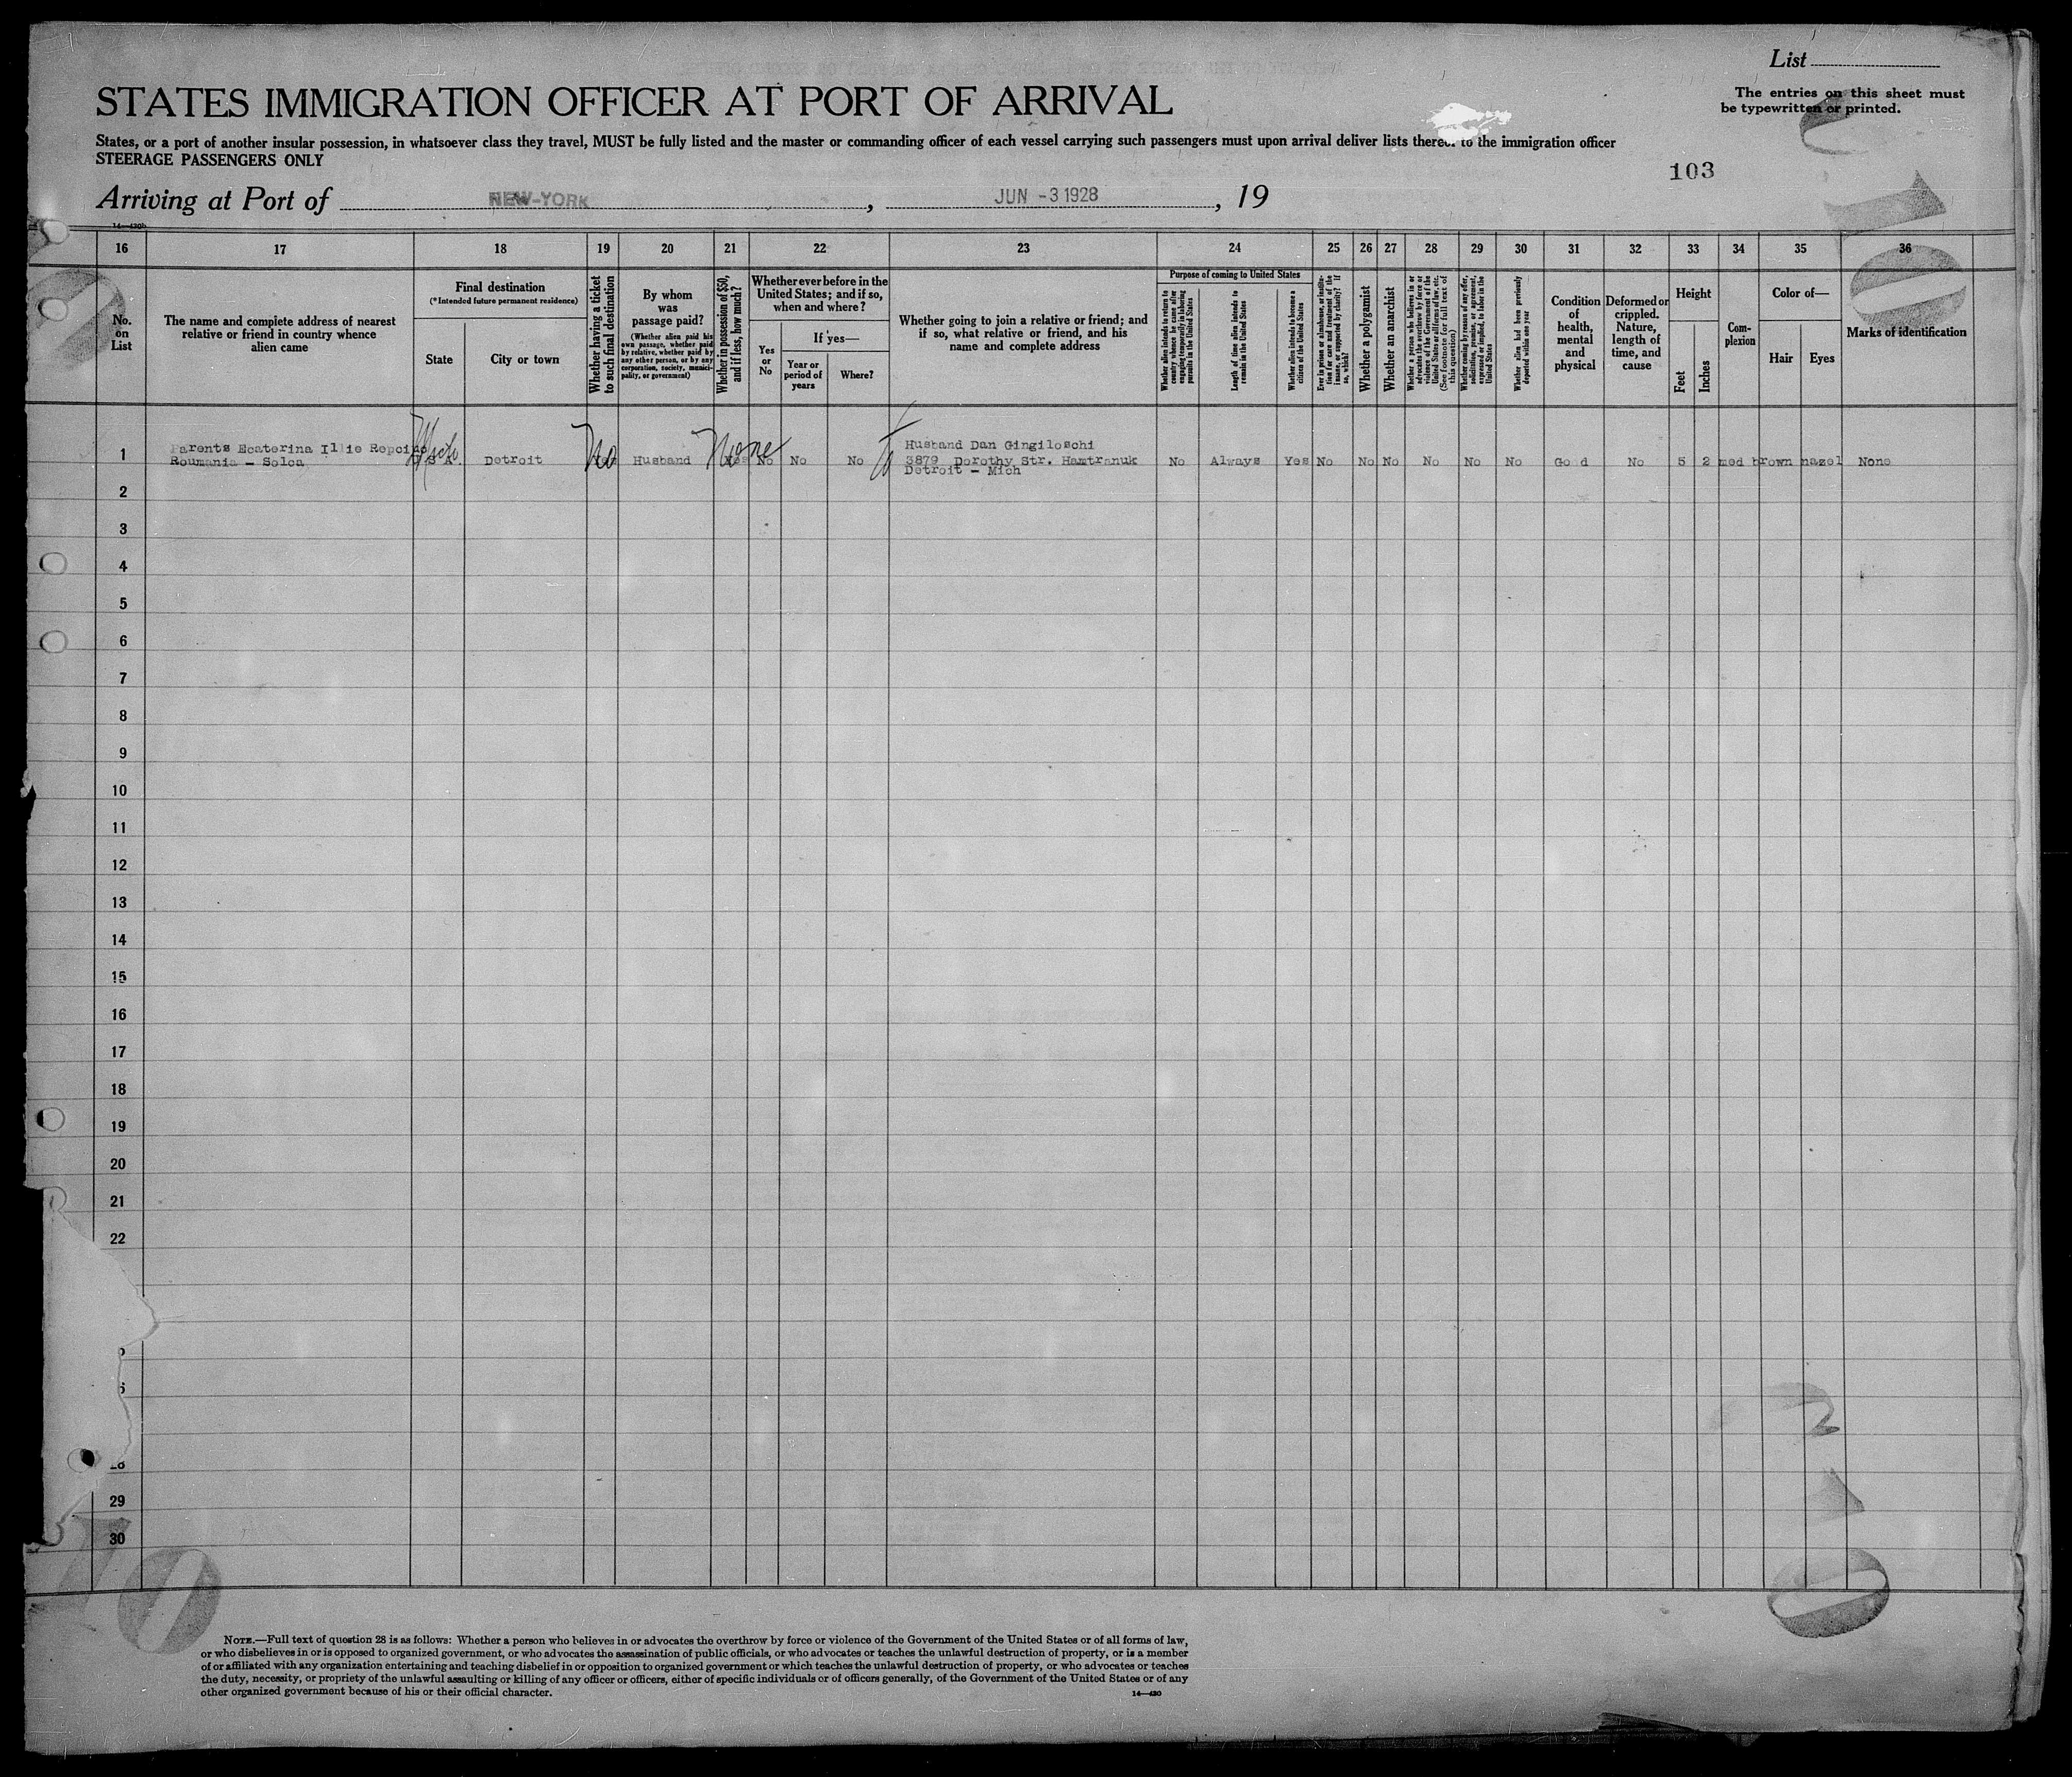 List
The entries on this sheet must
be typewritten or printed.
STATES IMMIGRATION OFFICER AT PORT OF ARRIVAL
States, or a port of another insular possession, in whatsoever class they travel, MUST be fully listed and the master or commanding officer of each vessel carrying such passengers must upon arrival deliver lists thereof to the immigration officer
STEERAGE PASSENGERS ONLY
103
Arriving at Port of NEW-YORK, JUN -3 1928, 19
16 17 18 19 20 21 22 23 24 25 26 27 28 29 30 31 32 33 34 35 36
No.
on
List
The name and complete address of nearest
relative or friend in country whence
alien came
Final destination
(*Intended future permanent residence)
State
City or town
Whether having a ticket
to such final destination
By whom
was
passage paid?
(Whether alien paid his
own passage, whether paid
by relative, whether paid by
any other person, or by any
corporation, society, munici-
pality, or government)
Whether in possession of $50,
and if less, how much?
Whether ever before in the
United States; and if so,
when and where?
Yes
or
No
If yes—
Year or
period of
years
Where?
Whether going to join a relative or friend; and
if so, what relative or friend, and his
name and complete address
Purpose of coming to United States
Whether alien intends to return to
country whence he came after
engaging temporarily in laboring
pursuits in the United States
Length of time alien intends to
remain in the United States
Whether alien intends to become a
citizen of the United States
Ever in prison or almshouse, or institu-
tion for care and treatment of the
insane, or supported by charity? If
so, which?
Whether a polygamist
Whether an anarchist
Whether a person who believes in or
advocates the overthrow by force or
violence of the Government of the
United States or all forms of law, etc.
(See footnote for full text of
this question)
Whether coming by reason of any offer,
solicitation, promise, or agreement,
expressed or implied, to labor in the
United States
Whether alien had been previously
deported within one year
Condition
of
health,
mental
and
physical
Deformed or
crippled.
Nature,
length of
time, and
cause
Height
Feet
Inches
Com-
plexion
Color of—
Hair
Eyes
Marks of identification
1 Parents Ecaterina Illie Repciuc Detroit No Husband None No No No Husband Dan Gingiloschi
Roumania - Solca 3879 Dorothy Str. Hamtranuk No Always Yes No No No No No No Good No 5 2 med brown hazel None
Detroit - Mich
2
3
4
5
6
7
8
9
10
11
12
13
14
15
16
17
18
19
20
21
22
29
30
NOTE.—Full text of question 28 is as follows: Whether a person who believes in or advocates the overthrow by force or violence of the Government of the United States or of all forms of law,
or who disbelieves in or is opposed to organized government, or who advocates the assassination of public officials, or who advocates or teaches the unlawful destruction of property, or is a member
of or affiliated with any organization entertaining and teaching disbelief in or opposition to organized government or which teaches the unlawful destruction of property, or who advocates or teaches
the duty, necessity, or propriety of the unlawful assaulting or killing of any officer or officers, either of specific individuals or of officers generally, of the Government of the United States or of any
other organized government because of his or their official character.
14—430